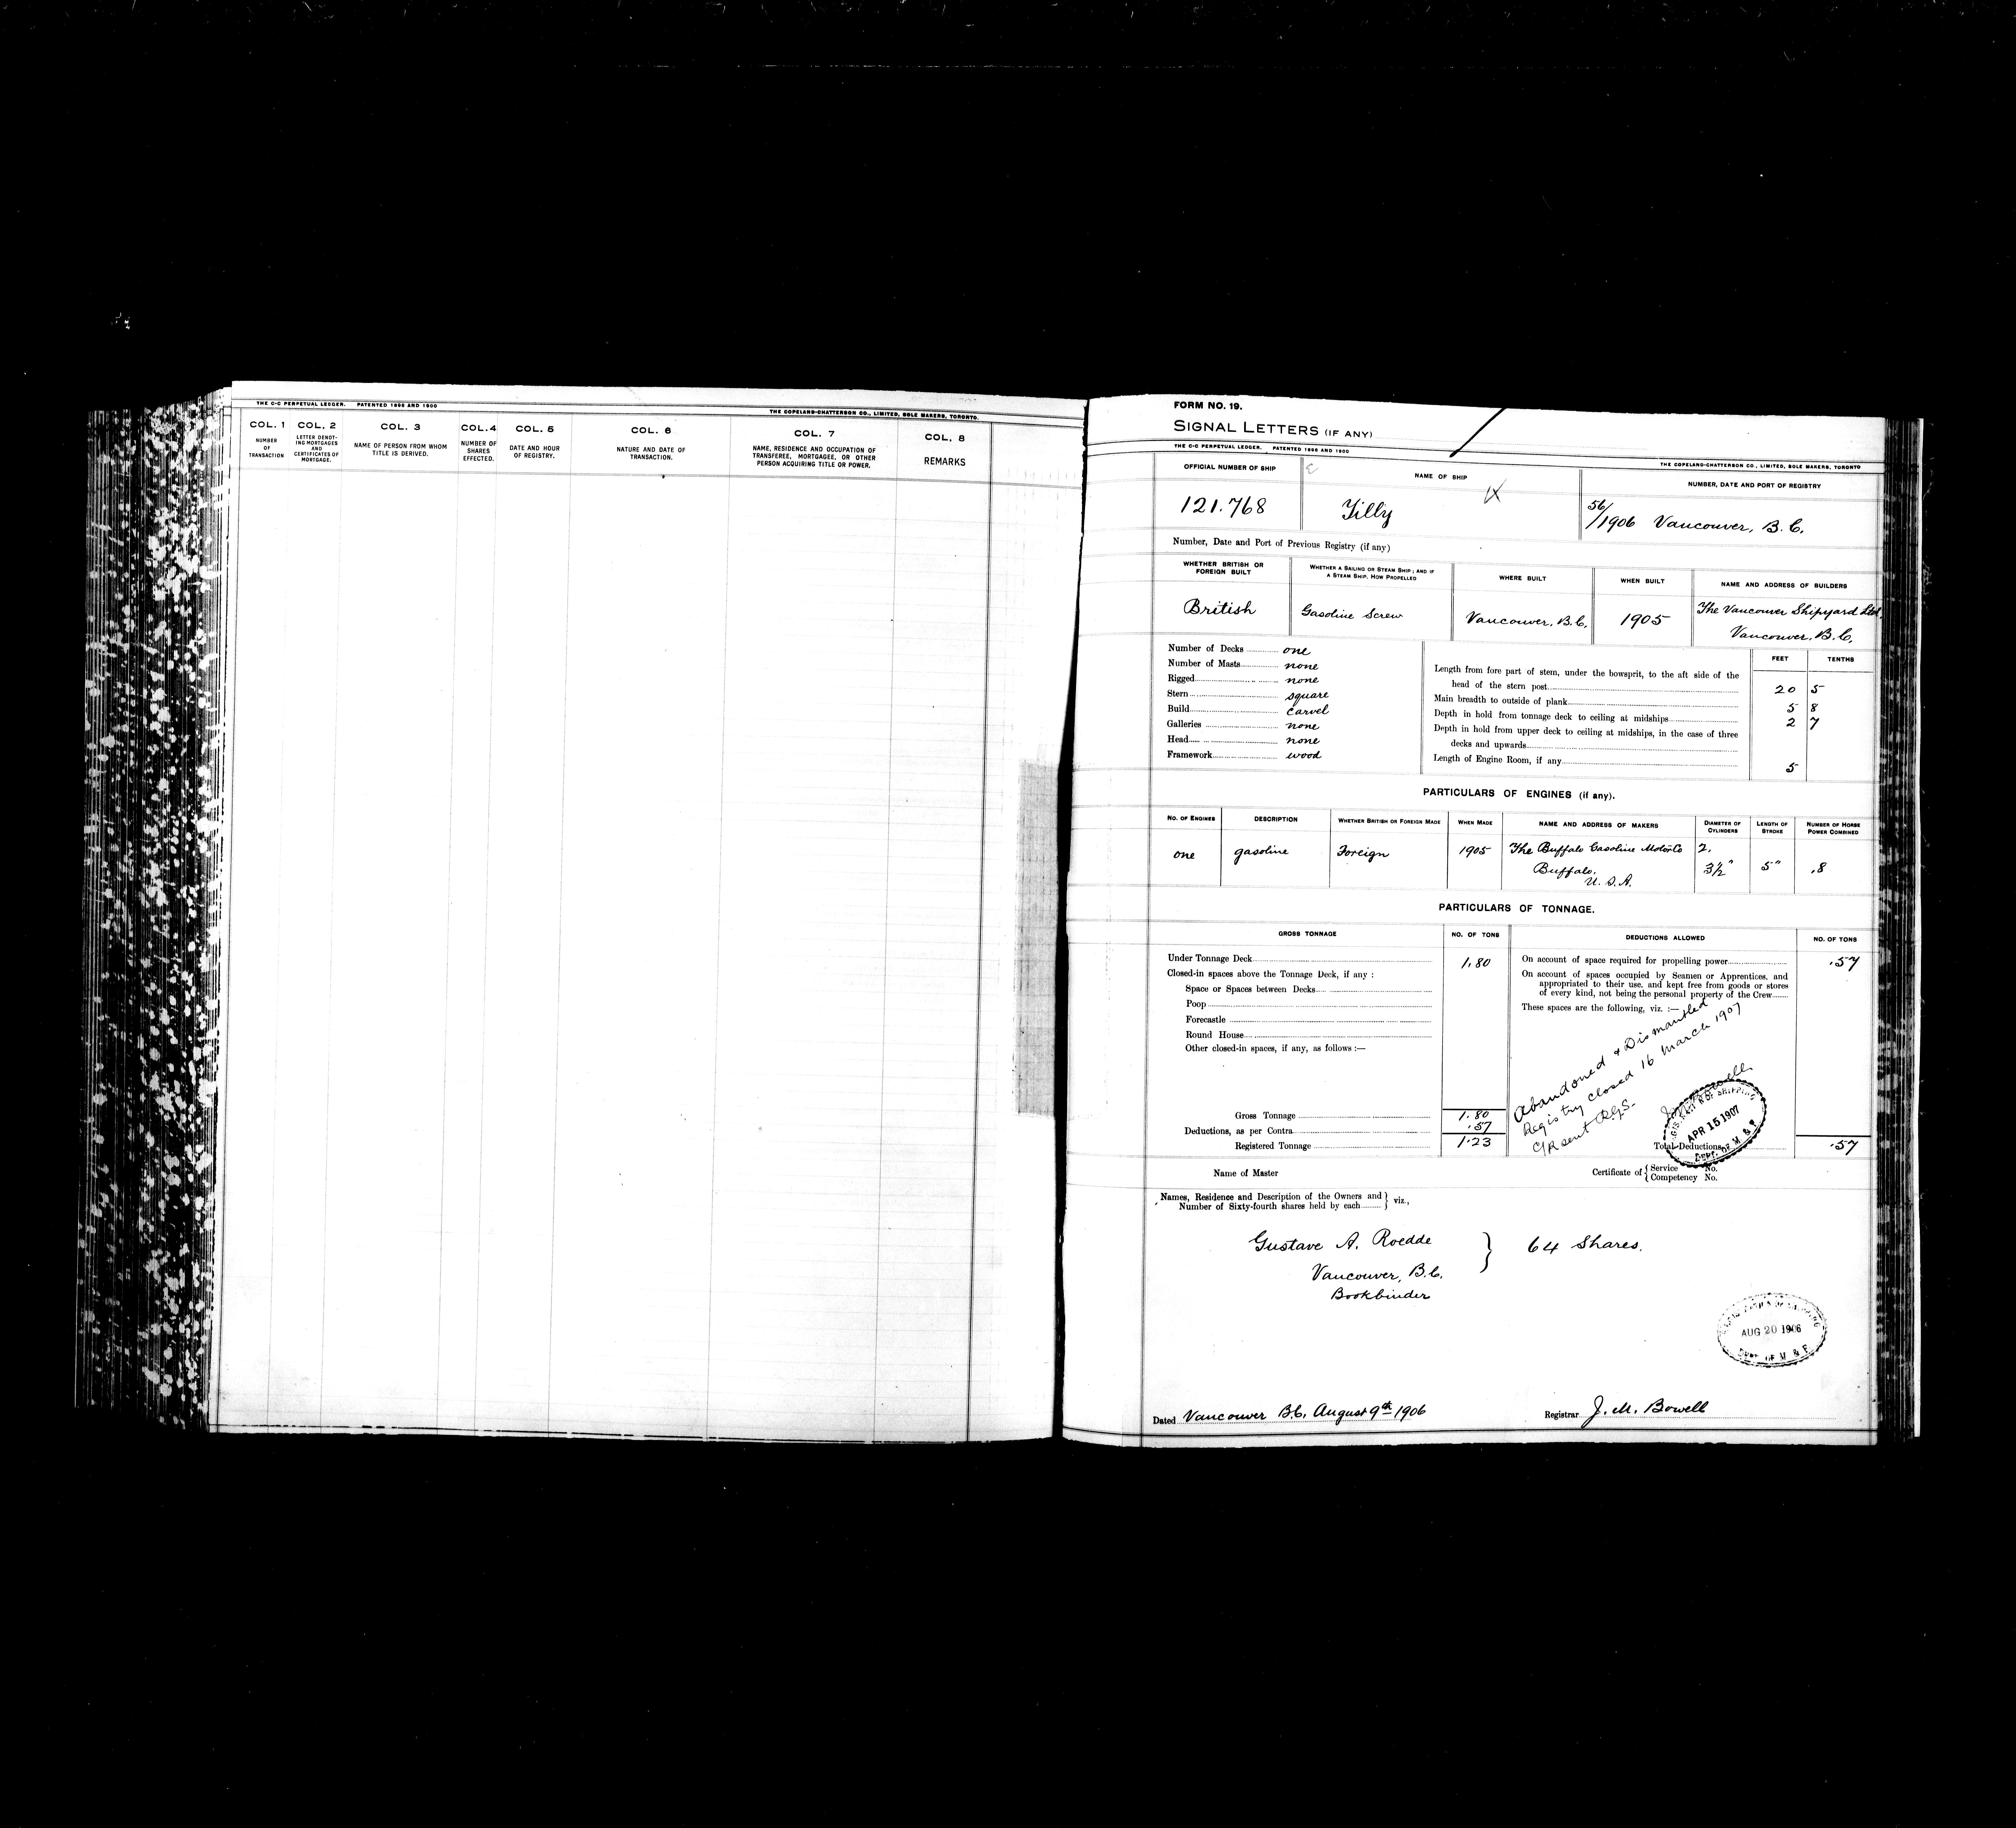 THE C-C PERPETUAL LEDGER. PATENTED 1896 AND 1900
THE COPELAND-CHATTERSON CO., LIMITED, SOLE MAKERS, TORONTO.
COL. 1 COL. 2 COL. 3 COL. 4 COL. 5 COL. 6 COL. 7 COL. 8
NUMBER OF TRANSACTION
LETTER DENOTING MORTGAGES AND CERTIFICATES OF MORTGAGE.
NAME OF PERSON FROM WHOM TITLE IS DERIVED.
NUMBER OF SHARES EFFECTED.
DATE AND HOUR OF REGISTRY.
NATURE AND DATE OF TRANSACTION.
NAME, RESIDENCE AND OCCUPATION OF TRANSFEREE, MORTGAGEE, OR OTHER PERSON ACQUIRING TITLE OR POWER.
REMARKS
FORM NO. 19.
SIGNAL LETTERS (IF ANY)
THE C-C PERPETUAL LEDGER. PATENTED 1896 AND 1900
THE COPELAND-CHATTERSON CO., LIMITED, SOLE MAKERS, TORONTO
OFFICIAL NUMBER OF SHIP
NAME OF SHIP
NUMBER, DATE AND PORT OF REGISTRY
121.768
Tilly
56/1906 Vancouver, B.C.
Number, Date and Port of Previous Registry (if any)
WHETHER BRITISH OR FOREIGN BUILT
WHETHER A SAILING OR STEAM SHIP; AND IF A STEAM SHIP, HOW PROPELLED
WHERE BUILT
WHEN BUILT
NAME AND ADDRESS OF BUILDERS
British
Gasoline Screw
Vancouver, B.C.
1905
The Vancouver Shipyard Ltd.
Vancouver, B.C.
Number of Decks one
Number of Masts none
Rigged none
Stern square
Build carvel
Galleries none
Head none
Framework wood
FEET TENTHS
Length from fore part of stem, under the bowsprit, to the aft side of the
head of the stern post 20 5
Main breadth to outside of plank 5 8
Depth in hold from tonnage deck to ceiling at midships 2 7
Depth in hold from upper deck to ceiling at midships, in the case of three
decks and upwards
Length of Engine Room, if any 5
PARTICULARS OF ENGINES (if any).
NO. OF ENGINES
DESCRIPTION
WHETHER BRITISH OR FOREIGN MADE
WHEN MADE
NAME AND ADDRESS OF MAKERS
DIAMETER OF CYLINDERS
LENGTH OF STROKE
NUMBER OF HORSE POWER COMBINED
one gasoline Foreign 1905 The Buffalo Gasoline Motor Co 2.
Buffalo. 3½" 5" .8
U.S.A.
PARTICULARS OF TONNAGE.
GROSS TONNAGE
NO. OF TONS
DEDUCTIONS ALLOWED
NO. OF TONS
Under Tonnage Deck 1.80
Closed-in spaces above the Tonnage Deck, if any :
Space or Spaces between Decks
Poop
Forecastle
Round House
Other closed-in spaces, if any, as follows :—
Gross Tonnage 1.80
Deductions, as per Contra .57
Registered Tonnage 1.23
On account of space required for propelling power .57
On account of spaces occupied by Seamen or Apprentices, and
appropriated to their use, and kept free from goods or stores
of every kind, not being the personal property of the Crew
These spaces are the following, viz. :—
Abandoned & Dismantled
Registry closed 16 March 1907
C/R sent R.G.S.
APR 15 1907
DEPT. OF M & F
Total Deductions .57
Name of Master
Certificate of { Service No.
Competency No.
Names, Residence and Description of the Owners and } viz.,
Number of Sixty-fourth shares held by each
Gustave A. Roedde } 64 Shares.
Vancouver, B.C.
Bookbinder
AUG 20 1906
DEPT. OF M & F
Dated Vancouver B.C. August 9th 1906
Registrar J. M. Bowell